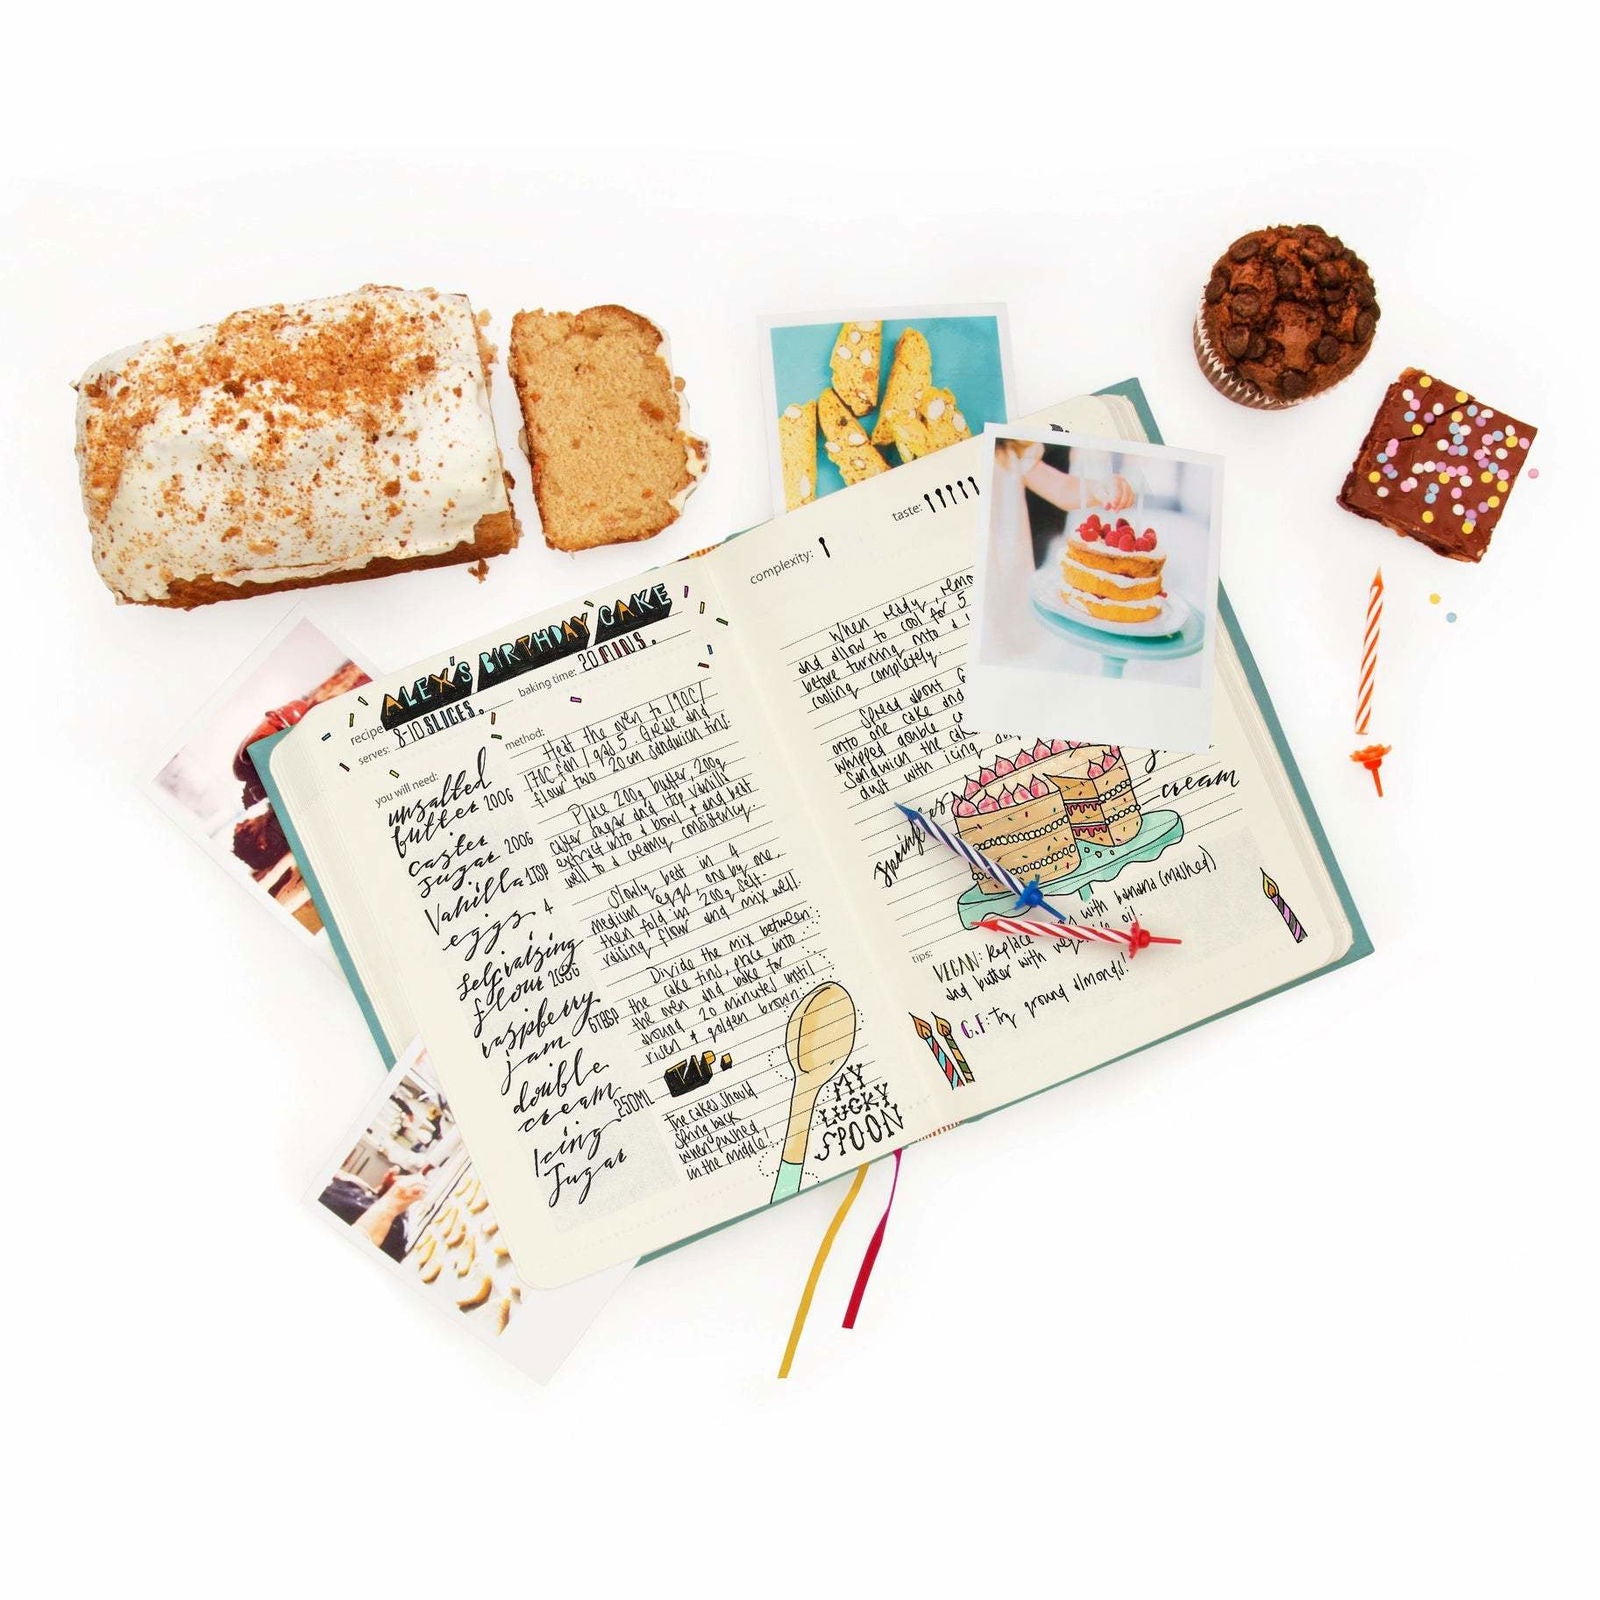 recipe: ALEX'S BIRTHDAY CAKE
serves: 8-10 SLICES.
baking time: 20 MINS.
you will need:
unsalted
butter 200G
caster
sugar 200G
Vanilla 1TSP
eggs 4
selfraising
flour 200G
raspberry
jam 6TBSP
double
cream 250ML
Icing
Sugar
method:
Heat the oven to 190C/
170C fan / gas 5. Grease and
flour two 20cm sandwich tins.
Place 200g butter, 200g
caster sugar and 1tsp vanilla
extract into a bowl & and beat
well to a creamy consistency.
Slowly beat in 4
medium eggs, one by one,
then fold in 200g self-
raising flour and mix well.
Divide the mix between
the cake tins, place into
the oven and bake for
around 20 minutes until
risen & golden brown.
TIP.
The cakes should
spring back
when pushed
in the middle!
MY
LUCKY
SPOON
complexity:
taste:
When ready, remo
and allow to cool for 5
before turning onto a
cooling completely.
Spread about 6
onto one cake and
whipped double
Sandwich the cake
dust with icing
cream
tips:
VEGAN: Replace with banana (mashed)
and butter with oil.
G.F: try ground almonds!